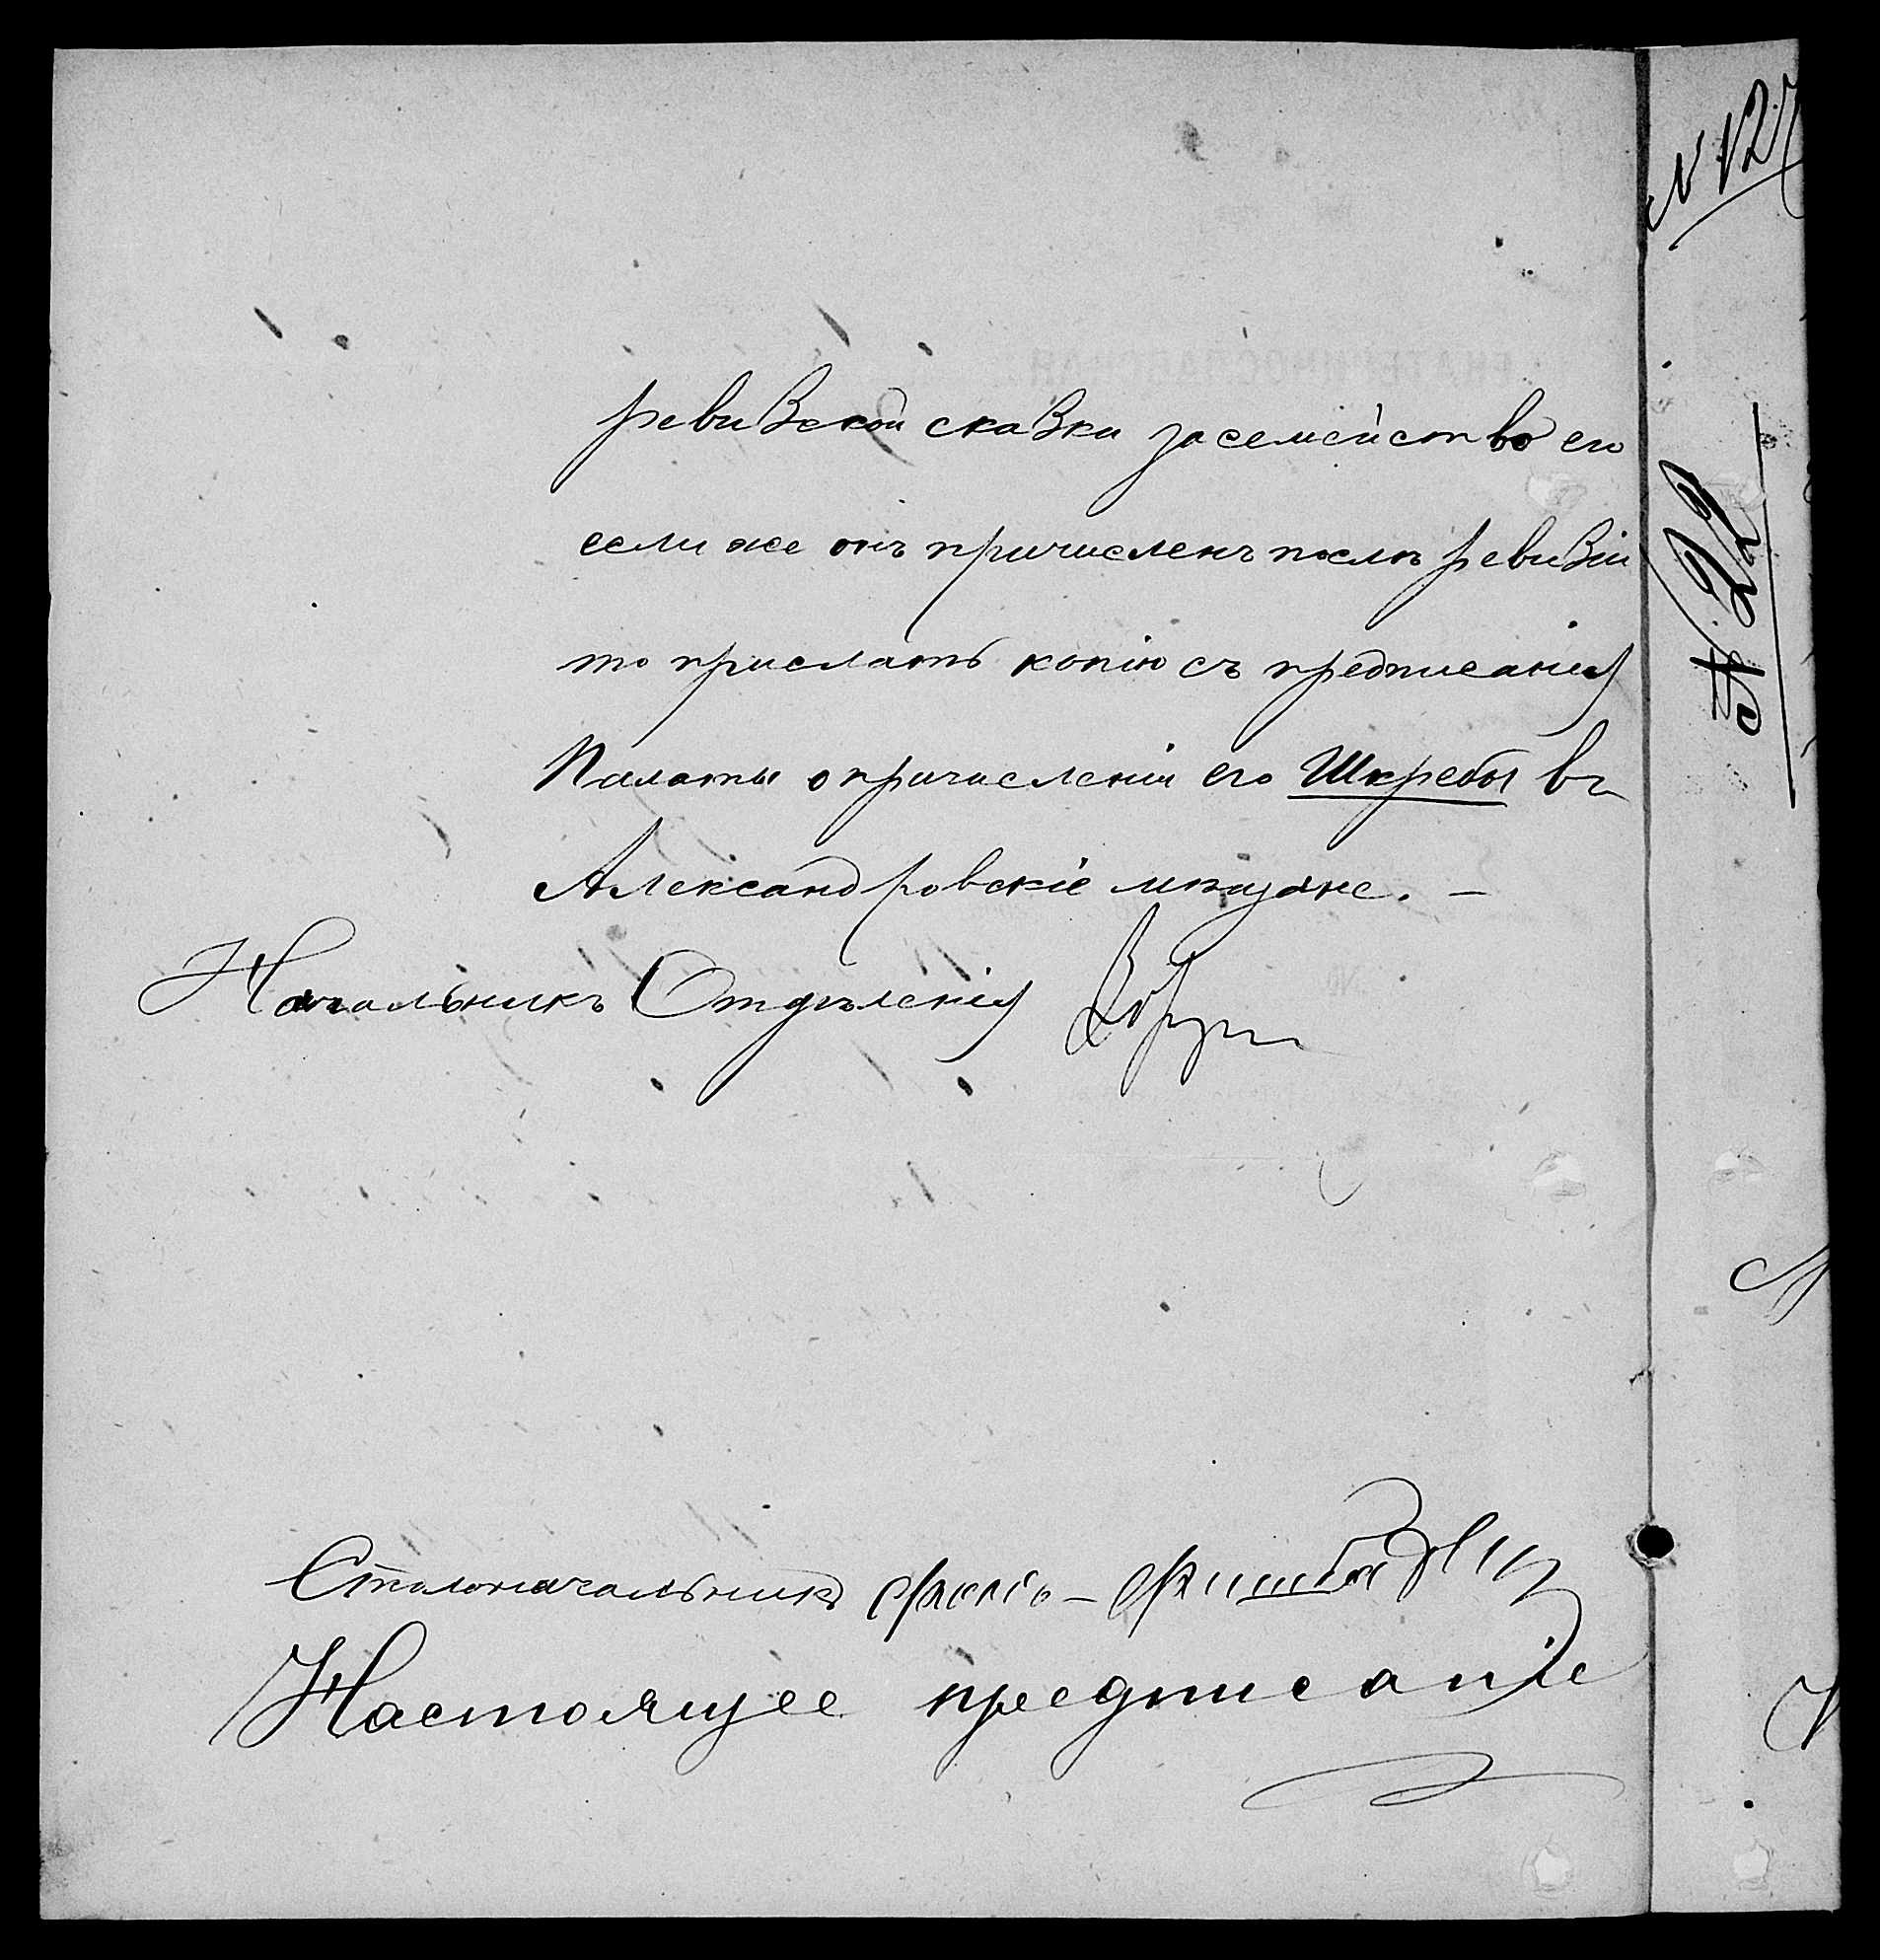 ревизской сказки за семейство его
если же онъ причисленъ послѣ ревизіи
то прислать копію съ предписанія
Палаты о причисленіи его Шкребы въ
Александровскіе мѣщане. –
Начальникъ Отдѣленія
Столоначальникъ
Настоящее предписаніе
№ 127
№ 22